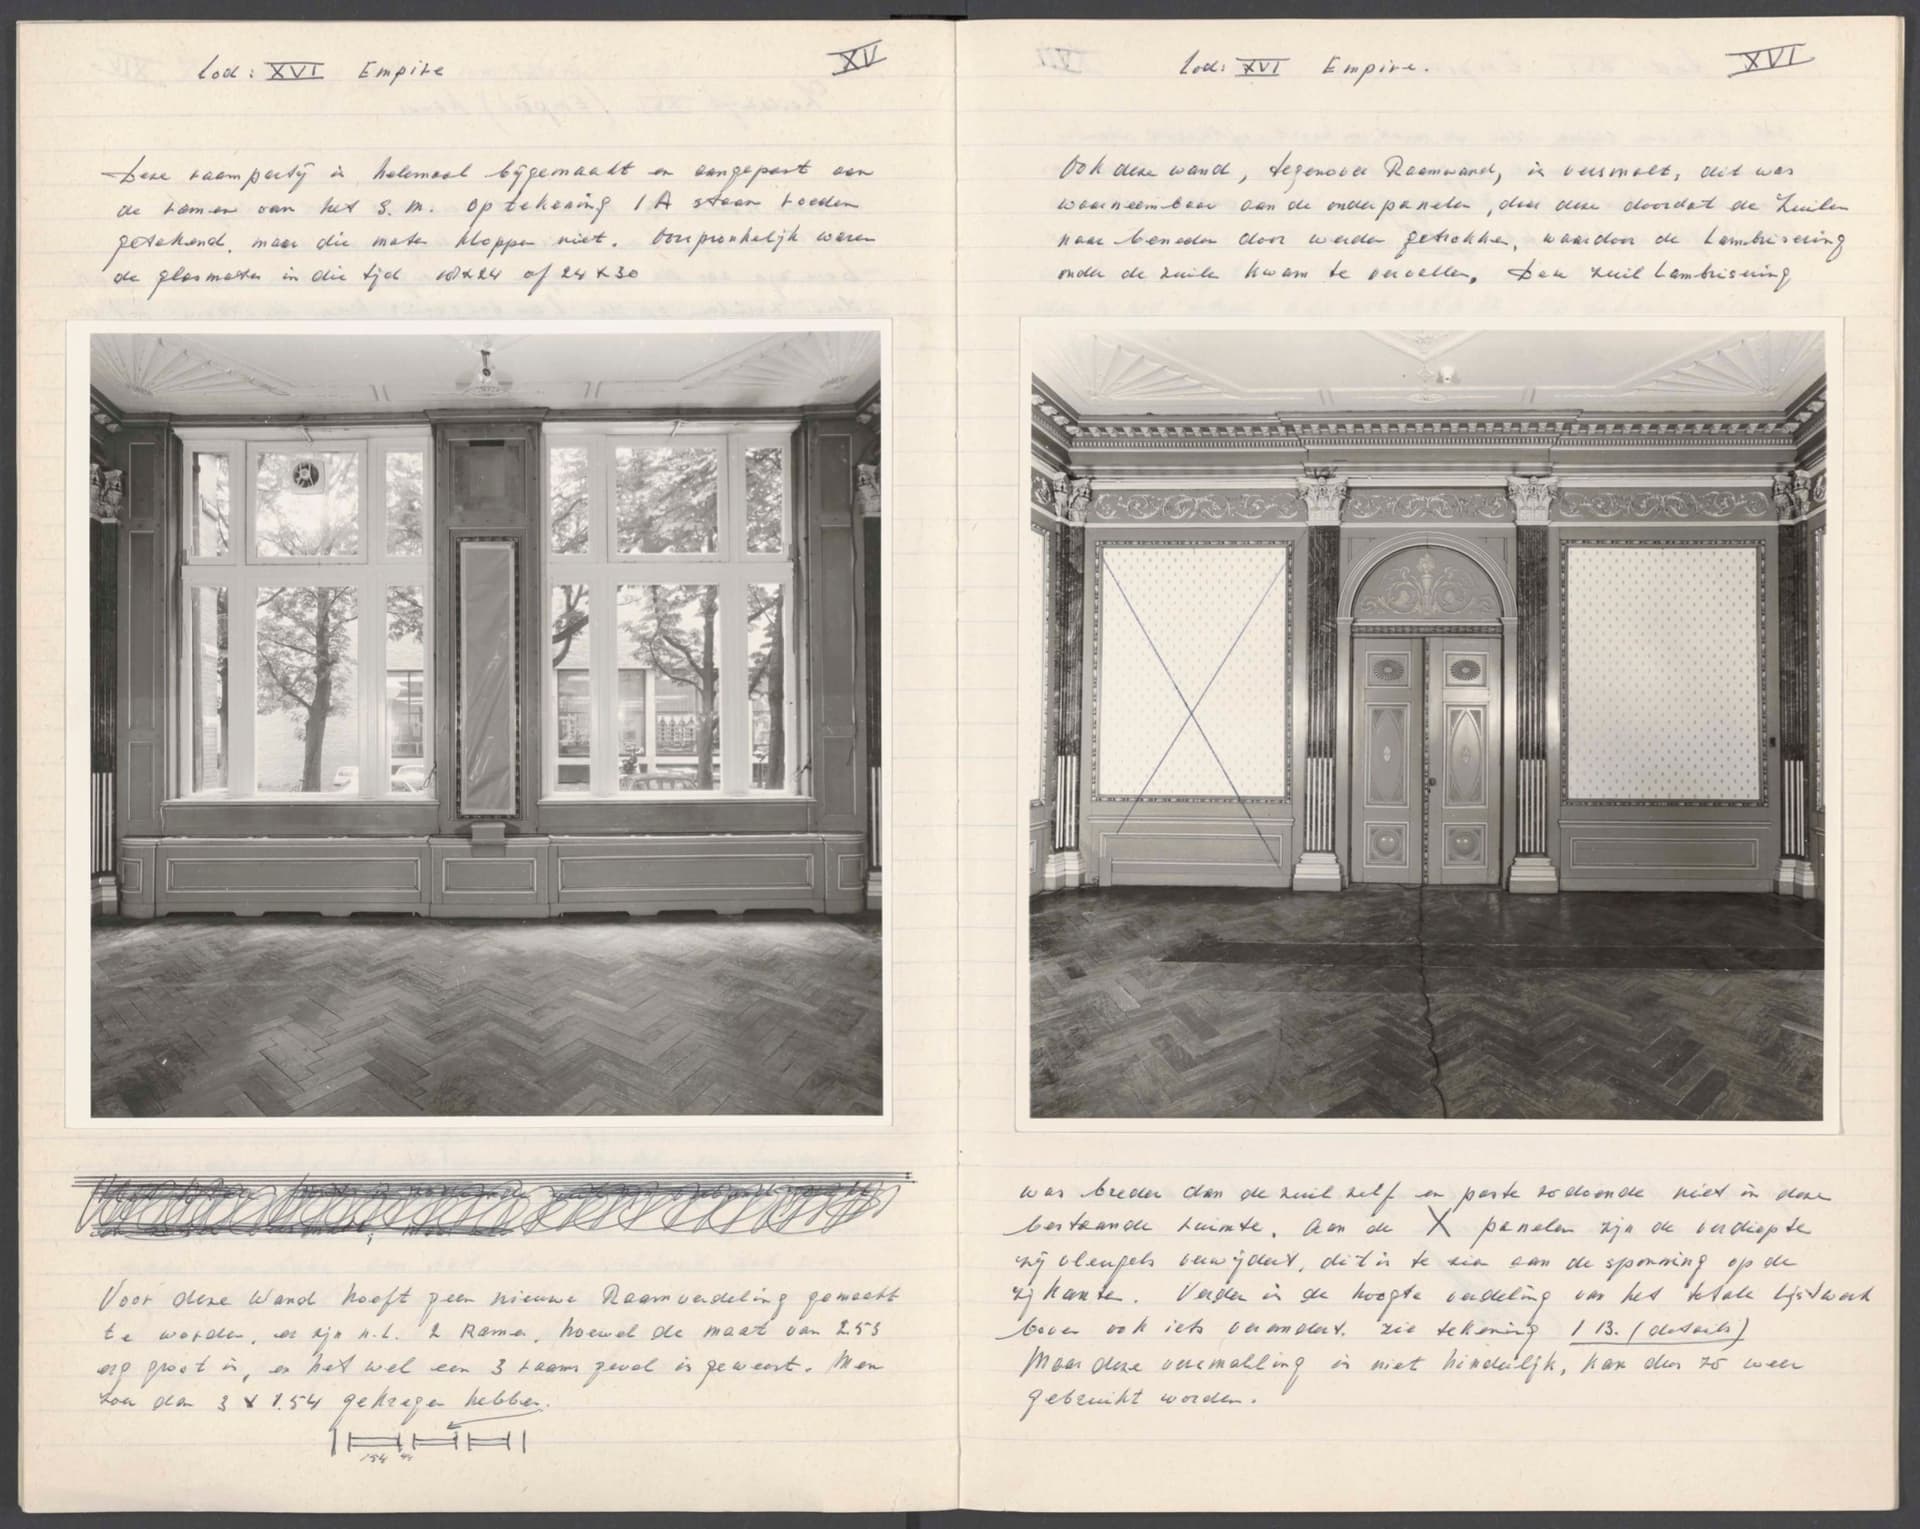 Lod: XVI Empire
XV
Deze raamparty is helemaal bijgemaakt en aangepast aan
de ramen van het S. M. Op tekening 1 A staan roeden
getekend, maar die maten kloppen niet. Oorspronkelijk waren
de glasmaten in die tijd 18x24 of 24x30
Voor deze Wand hoeft geen nieuwe Raamverdeling gemaakt
te worden, er zijn n.l. 2 Ramen, hoewel de maat van 253
erg groot is, en het wel een 3 raams gevel is geweest. Men
zou dan 3 x 1.54 gekregen hebben.
154
Lod: XVI Empire.
XVI
Ook deze wand, tegenover Raamwand, is versmalt, dit was
waarneembaar aan de onderpanelen, deze doordat de Zuilen
naar beneden door werden getrokken, waardoor de Lambrisering
onder de zuilen kwam te vervallen. Deze zuil Lambrisering
was breder dan de zuil zelf en paste zodoende niet in deze
bestaande ruimte. Aan de X panelen zijn de verdiepte
zij vleugels verwijdert, dit is te zien aan de sponning op de
zij kanten. Verder is de hoogte verdeling van het totale lijstwerk
boven ook iets verandert. zie tekening 1 B. (details)
Maar deze versmalling is niet hinderlijk, kan dus zo weer
gebruikt worden.